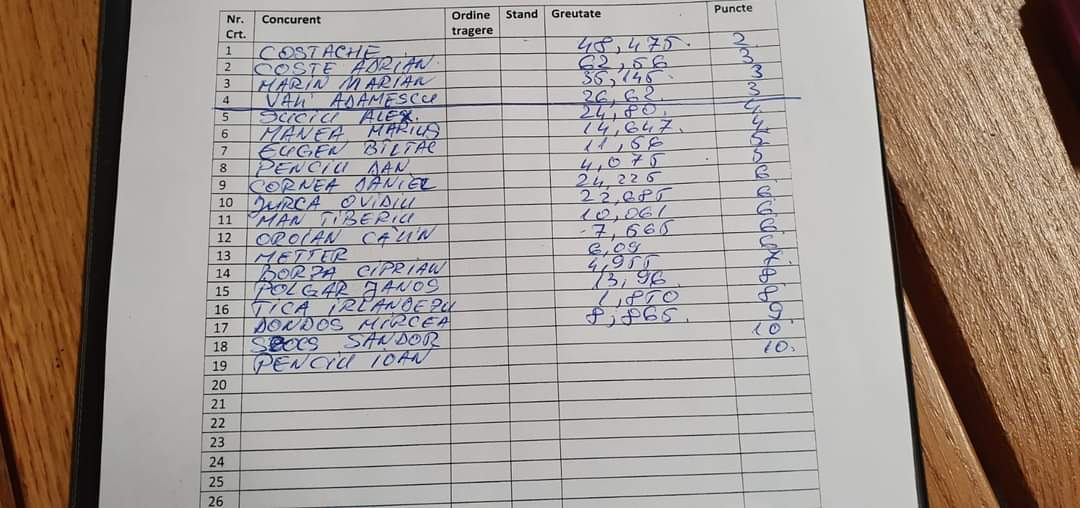 Nr. Crt. Concurent Ordine tragere Stand Greutate Puncte
1 COSTACHE 48,475. 2
2 COSTE ADRIAN. 62,56 3
3 MARIN MARIAN 35,145. 3
4 VALI ADAMESCU 26,62. 3
5 SUCIU ALEX. 24,80. 4
6 MANEA MARIUS 14,647. 4
7 EUGEN BILTAC 11,56 5
8 PENCIU DAN 4,075 5
9 CORNEA DANIEL 24,225 6
10 JURCA OVIDIU 22,685 6
11 MAN TIBERIU 10,061 6
12 OROIAN CALIN 7,565 6
13 METTER 6,09 6
14 BORZA CIPRIAN 4,955 7.
15 POLGAR JANOS 13,96 8
16 TICA IRLANDEZU 1,850 8
17 DONDOS MIRCEA 8,865. 9
18 SANDOR 10
19 PENCIU IOAN 10.
20
21
22
23
24
25
26